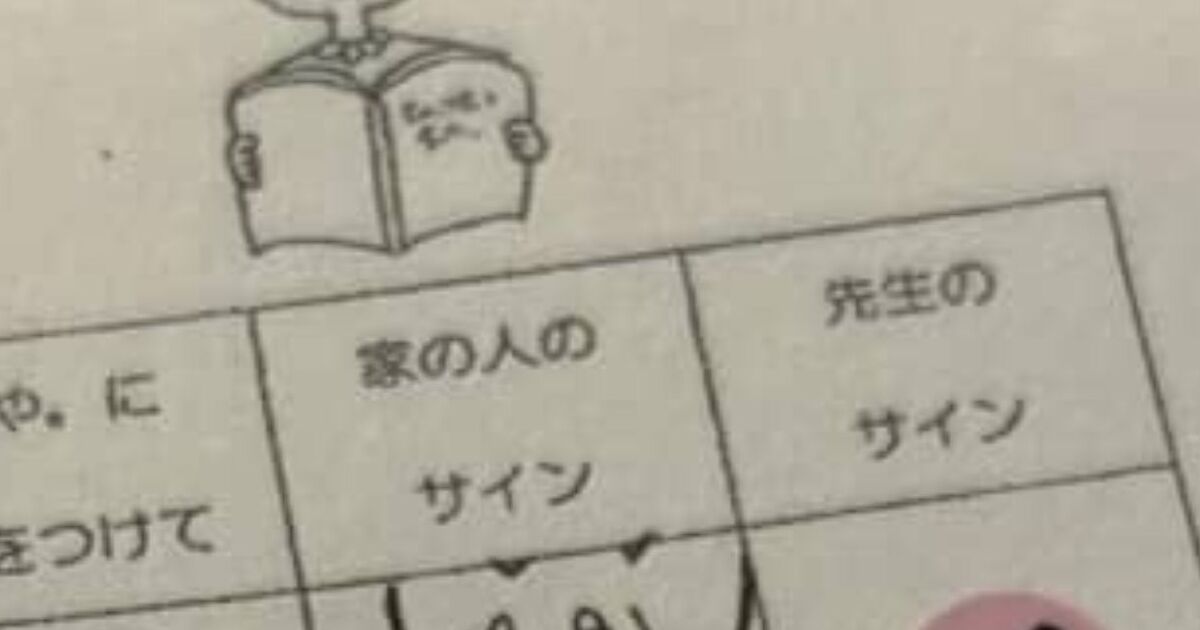 や。に
をつけて
家の人の
サイン
先生の
サイン